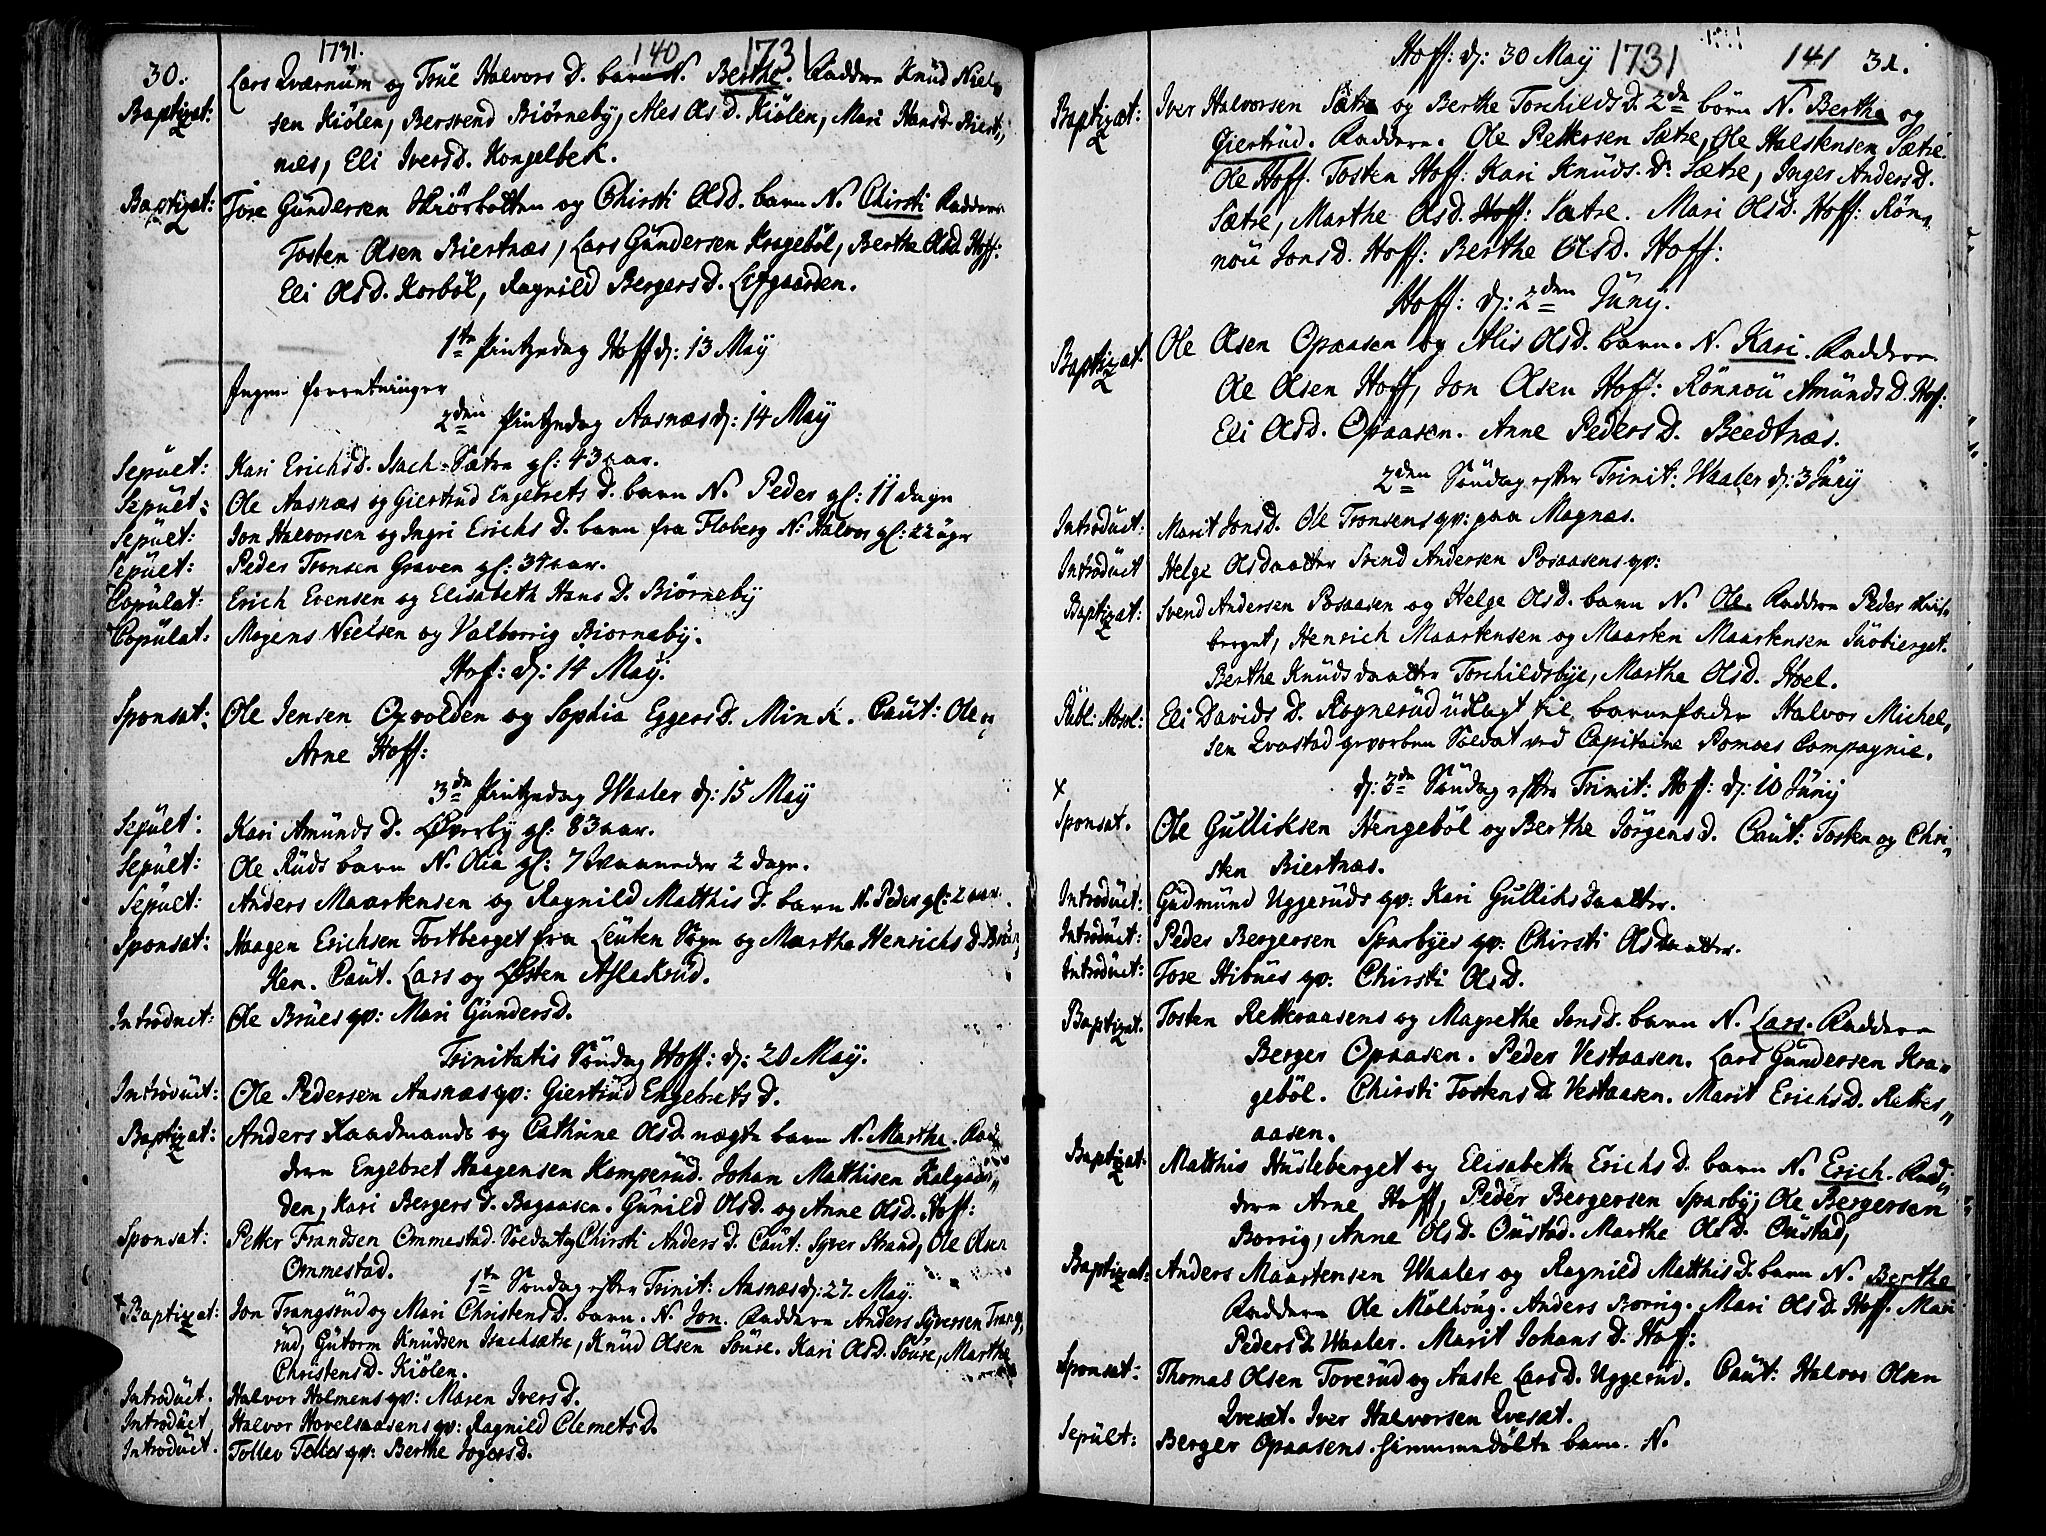 30. 1731. 140 1731
Baptizat: Lars Qværnum og True Halvors D. barn N. Berthe. Faddere Knud Niel„
sen Kiölen, Bersvend Biörneby, Ales Ols D. Kiölen, Mari Hansd. Biert„
nes, Eli Iversd. Kongelbek.
Baptizat: Tore Gundersen Skiörbotten og Chirsti Olsd. barn N. Chirsti Faddere
Tosten Olsen Biertnæs, Lars Gundersen Krageböl, Berthe Olsd. Hoff:
Eli Olsd. Korböl, Ragnild Bergers D. Lifgaarden.
1te Pintzedag Hoff d: 13 May
Ingen forretninger
2den Pintzedag Aasnæs d: 14 May
Sepult: Kari Erichsd. Isach-Sætre gl: 43 aar.
Sepult: Ole Aasnæs og Giertrud Engebrets D. barn N. Peder gl: 11 dage
Sepult: Jon Halvorsen og Ingri Erichs D. barn fra Floberg N: Halvor gl: 22 uger
Sepult: Peder Tronsen Graven gl: 34 aar.
Copulat: Erich Evensen og Elisabeth Hans D. Biörneby
Copulat: Mogens Nielsen og Valborrig Biorneby.
Hof: d: 14 May.
Sponsat: Ole Jensen Opvolden og Sophia Eggersd. Mink. Caut: Ole„
Arne Hoff:
3de Pintzedag Waaler d: 15 May
Sepult: Kari Amunds D. Öfverby gl: 83 aar.
Sepult: Ole Ruds barn N. Olia gl: 7 Maaneder 2 dage.
Sepult: Anders Maartensen og Ragnild Matthis D. barn N. Peder gl: 2 aar.
Sponsat: Haagen Erichsen Tortberget fra Leuten Sogn og Marthe Henrichs D. Brus„
ken. Caut. Lars og Östen Aflakrud.
Introduct: Ole Brues qv: Mari Gundersd.
Trinitatis Söndag Hoff: d: 20 May.
Introduct: Ole Pedersen Aasnæs qv: Giertrud Engebrets D.
Baptizat: Anders Kaadmands og Cathrine Olsd. uægte barn N. Marthe. Fad„
dere Engebret Haagensen Kamperud. Johan Matthisen Kalgaar„
den, Kari Bergers D. Bagaasen. Gunild Olsd. og Anne Olsd. Hoff:
Sponsat: Petter Frandsen Ommestad. Soldat og Chirsti Anders D. Caut: Syver Strand, Ole Olsen
Ommestad.
1te Söndag efter Trinit: Aasnæs d: 27. May.
Baptizat: Jon Trangsrud og Mari Christens D. barn. N. Jon. Faddere Anders Syversen Trangs„
rud, Gutorm Knudsen Isachsætre, Knud Olsen Soure. Kari Olsd. Soure, Marthe
Christensd. Kiölen.
Introduct. Halvor Holmens qv: Maren Ivers D.
Introduct Halvor Hovelsaasens qv: Ragnild Clemets D.
Introduct. Tollev Telles qv: Berthe Jogersd.
Hoff: d: 30 May 1731 141 31.
Baptizat: Iver Halvorsen Sætre og Berthe Torchilds D. 2de börn N. Berthe og
Giertrud. Faddere. Ole Pettersen Sætre, Ole Halstensen Sætre.
Ole Hoff. Tosten Hoff: Kari Knuds. D. Sætre, Inger Anders D.
Sætre, Marthe Olsd. Hoff: Sætre. Mari Olsd. Hoff: Rön„
nou Jonsd. Hoff: Berthe Olsd. Hoff:
Hoff: d: 2den Juny.
Baptizat: Ole Olsen Opaasen og Alis Olsd. barn. N. Kari. Faddere
Ole Olsen Hoff, Jon Olsen Hoff: Rönnou Amunds D. Hoff:
Eli Olsd. Opaasen. Anne Peders D. Beedtnæs.
2den Söndag efter Trinit: Waaler d: 3 Juny
Introduct: Marit Jonsd. Ole Tronsens qv: paa Mognæs.
Introduct Helge Olsdaatter Svend Andersen Posaasens qv:
Baptizat: Svend Andersen Posaasen og Helge Olsd. barn N. Ole. Faddere Peder Huse„
berget, Henrich Maartensen og Maarten Maartensen Snobierget.
Berthe Knudsdaatter Torchildsbye, Marthe Olsd. Hoel.
Publ: Absol: Eli Davids D. Rognerud udlagt til barnefader Halvor Michel„
sen Qvastad gevorben Soldat ved Capitaine Pomoes Compagnie.
d: 3de Söndag efter Trinit: Hoff: d: 10 Junij
x
Sponsat. Ole Gulliksen Nengeböl og Berthe Jörgensd. Caut: Tosten og Chri„
sten Biertnæs.
Introduct: Gudmund Uggeruds qv: Kari Gullichsdaatter.
Introduct: Peder Bergersen Sparbyes qv: Chirsti Olsdaatter.
Introduct: Tore Hibnes qv: Chirsti Ols D.
Baptizat. Tosten Retteraasens og Magrethe Jonsd. barn N. Lars. Faddere
Berger Opaasen. Peder Vestaasen. Lars Gundersen Kra„
geböl. Chirsti Tostens D. Vestaasen. Marit Erichs D. Retter„
aasen.
Baptizat: Matthis Husleberget og Elisabeth Erichs D. barn N. Erich. Fad„
dere Arne Hoff, Peder Bergersen Sparby, Ole Bergersen
Borrig, Anne Olsd. Oustad. Marthe Olsd. Oustad,
Baptizat: Anders Maartensen Waaler og Ragnild Matthis D. barn N. Berthe
Faddere Ole Mölhoug. Anders Borrig. Mari Ols D. Hoff. Mari
Peders D. Waaler. Marit Johans D. Hoff:
Sponsat: Thomas Olsen Toverud og Aaste Larsd. Uggerud. Caut: Halvor Olsen
Qvesæt. Iver Halvorsen Qvesæt.
Sepult: Berger Opaasens hiemmedöbte barn. N.